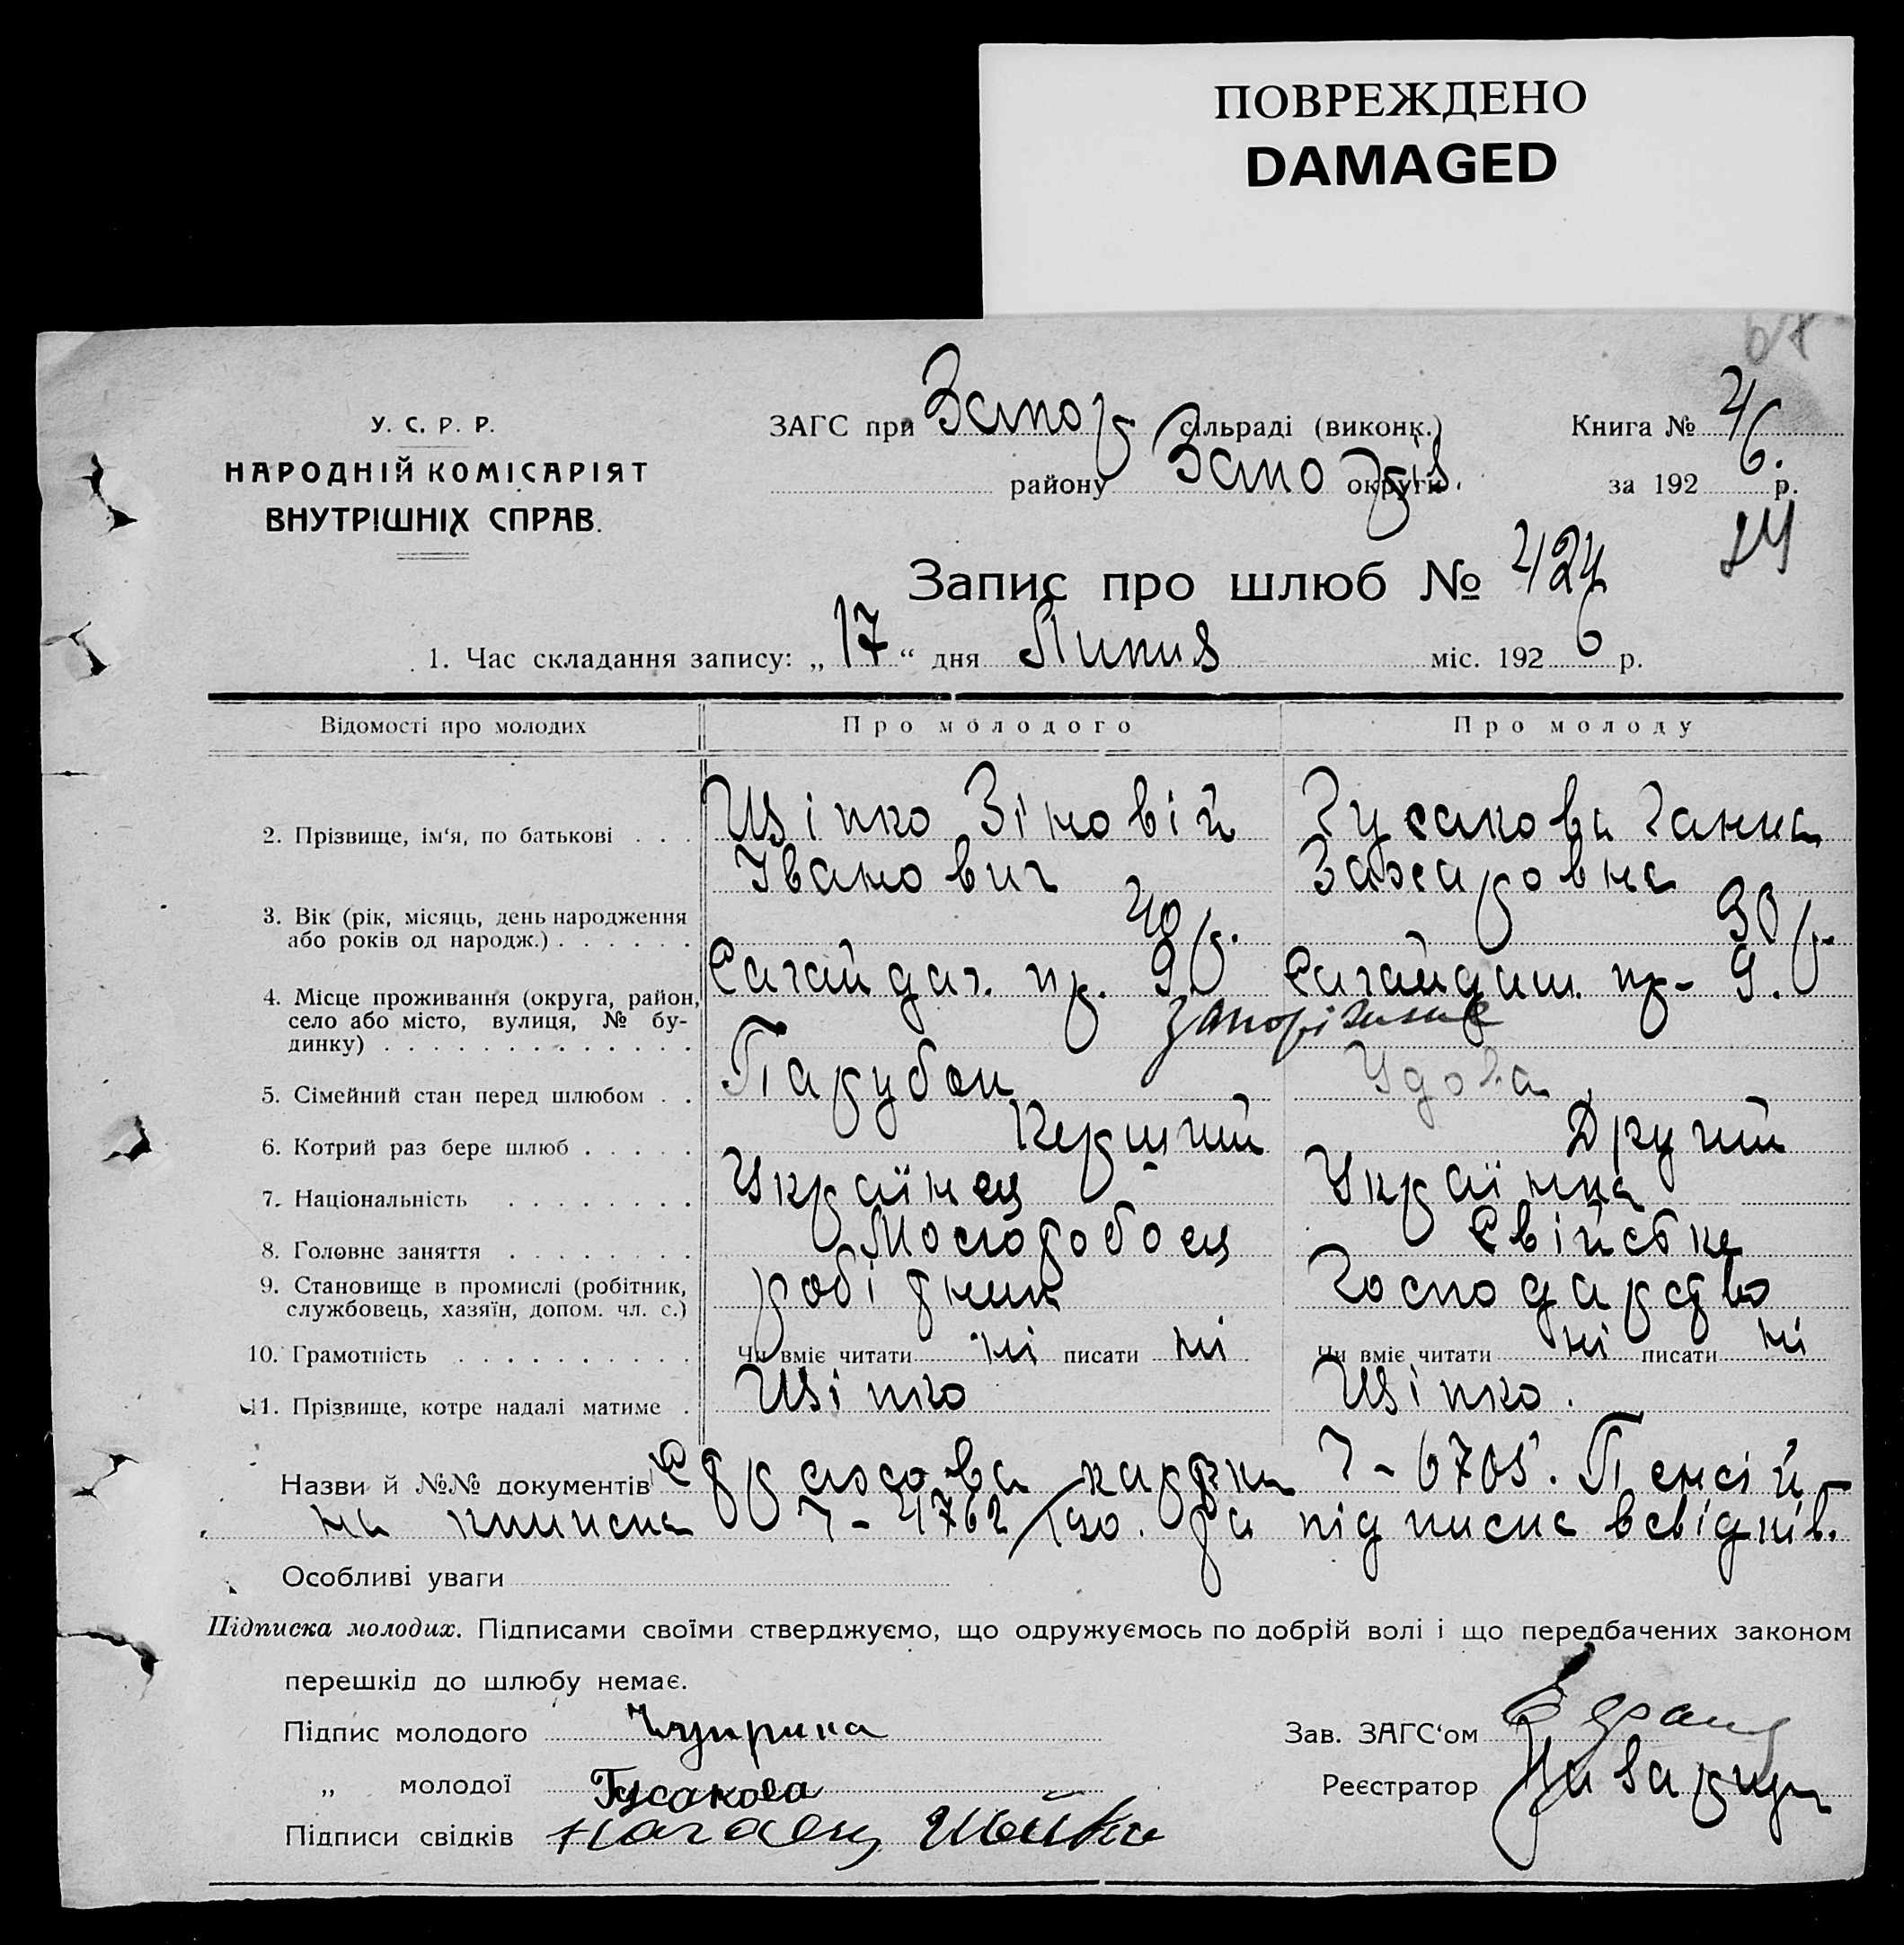 ПОВРЕЖДЕНО
DAMAGED
У. С. Р. Р.
НАРОДНІЙ КОМІСАРІЯТ
ВНУТРІШНІХ СПРАВ.
ЗАГС при Запор сільраді (виконк.)
району Запоріз округи
Книга № 4
за 1926 р.
Запис про шлюб № 424
24
1. Час складання запису: „17“ дня Липня міс. 1926 р.
Відомості про молодих Про молодого Про молоду
2. Прізвище, ім‘я, по батькові . . . Ціпко Зіновій Гусакова Ганна
Іванович Захаровна
3. Вік (рік, місяць, день народження 40 р. 30 р.
або років од народж.) . . . . . .
4. Місце проживання (округа, район, Сагайдач. пр. 9. Сагайдаш. пр- 9.
село або місто, вулиця, № бу- Запоріжжя
динку) . . . . . . . . . . . . .
5. Сімейний стан перед шлюбом . . Парубок Удова
6. Котрий раз бере шлюб . . . . . Перший Другий
7. Національність . . . . . . . . Українец Українка
8. Головне заняття . . . . . . . . Свійське
9. Становище в промислі (робітник, робітник Господарство
службовець, хазяїн, допом. чл. с.)
10. Грамотність . . . . . . . . . . Чи вміє читати ні писати ні Чи вміє читати ні писати ні
11. Прізвище, котре надалі матиме . Ціпко Ціпко.
Назви й №№ документів Страхова картка 6705. Пенсій-
на книжка 4762 та підписка свідків.
Особливі уваги
Підписка молодих. Підписами своїми стверджуємо, що одружуємось по добрій волі і що передбачених законом
перешкід до шлюбу немає.
Підпис молодого Чуприна
Зав. ЗАГС‘ом
„ молодої Гусакова
Реєстратор
Підписи свідків